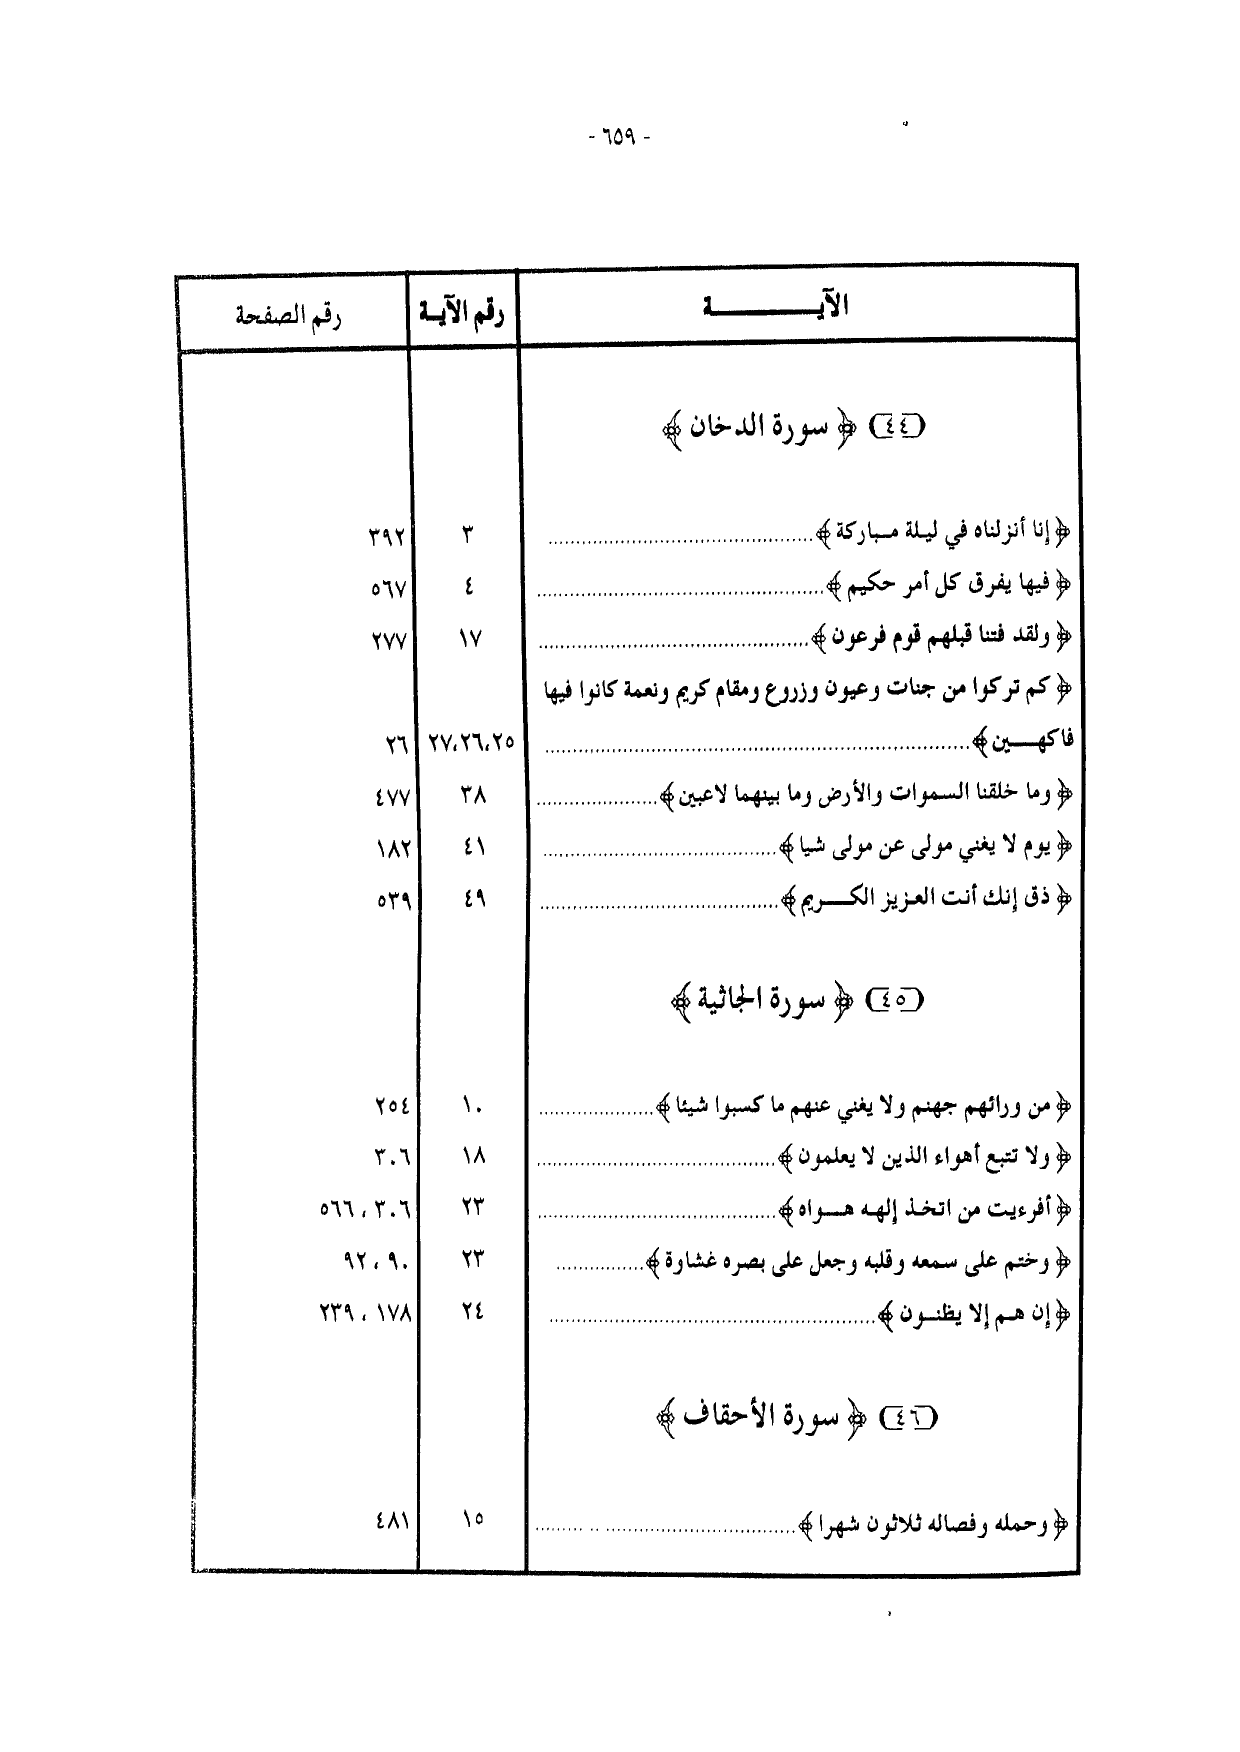 - ٦٥٩ -
الآيـــــــــة رقم الآيـة رقم الصفحة
(٤٤) ﴿ سورة الدخان ﴾
﴿ إنا أنزلناه في ليلة مباركة ﴾ ........ ٣ ٣٩٢
﴿ فيها يفرق كل أمر حكيم ﴾ ........ ٤ ٥٦٧
﴿ ولقد فتنا قبلهم قوم فرعون ﴾ ........ ١٧ ٢٧٧
﴿ كم تركوا من جنات وعيون وزروع ومقام كريم ونعمة كانوا فيها
فاكهـــين ﴾ ........ ٢٥،٢٦،٢٧ ٢٦
﴿ وما خلقنا السموات والأرض وما بينهما لاعبين ﴾ ........ ٣٨ ٤٧٧
﴿ يوم لا يغني مولى عن مولى شيا ﴾ ........ ٤١ ١٨٢
﴿ ذق إنك أنت العزيز الكـــريم ﴾ ........ ٤٩ ٥٣٩
(٤٥) ﴿ سورة الجاثية ﴾
﴿ من ورائهم جهنم ولا يغني عنهم ما كسبوا شيئا ﴾ ........ ١٠ ٢٥٤
﴿ ولا تتبع أهواء الذين لا يعلمون ﴾ ........ ١٨ ٣٠٦
﴿ أفرءيت من اتخذ إلهه هـــواه ﴾ ........ ٢٣ ٣٠٦ ، ٥٦٦
﴿ وختم على سمعه وقلبه وجعل على بصره غشاوة ﴾ ........ ٢٣ ٩٠ ، ٩٢
﴿ إن هـم إلا يظنـون ﴾ ........ ٢٤ ١٧٨ ، ٢٣٩
(٤٦) ﴿ سورة الأحقاف ﴾
﴿ وحمله وفصاله ثلاثون شهرا ﴾ ........ ١٥ ٤٨١